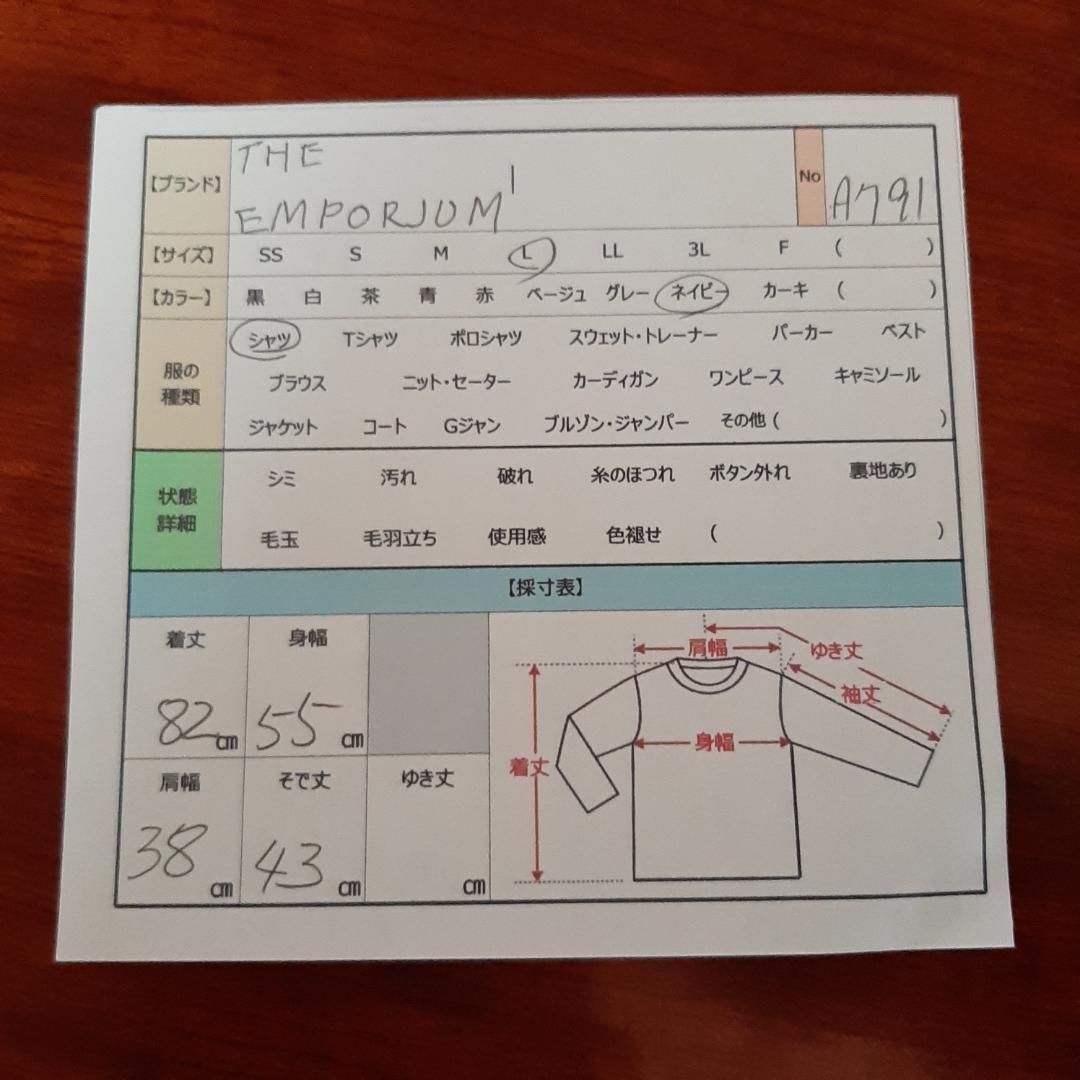 【ブランド】 THE EMPORIUM No A791
【サイズ】 SS S M L LL 3L F ( )
【カラー】 黒 白 茶 青 赤 ベージュ グレー ネイビー カーキ ( )
服の種類 シャツ Tシャツ ポロシャツ スウェット・トレーナー パーカー ベスト
ブラウス ニット・セーター カーディガン ワンピース キャミソール
ジャケット コート Gジャン ブルゾン・ジャンパー その他 ( )
状態詳細 シミ 汚れ 破れ 糸のほつれ ボタン外れ 裏地あり
毛玉 毛羽立ち 使用感 色褪せ ( )
【採寸表】
着丈 身幅
82cm 55cm
肩幅 そで丈 ゆき丈
38cm 43cm cm
肩幅 ゆき丈
袖丈
身幅
着丈